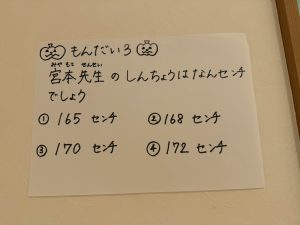 もんだい3
みやもとせんせい
宮本先生のしんちょうはなんセンチ
でしょう
① 165 センチ ② 168 センチ
③ 170 センチ ④ 172 センチ